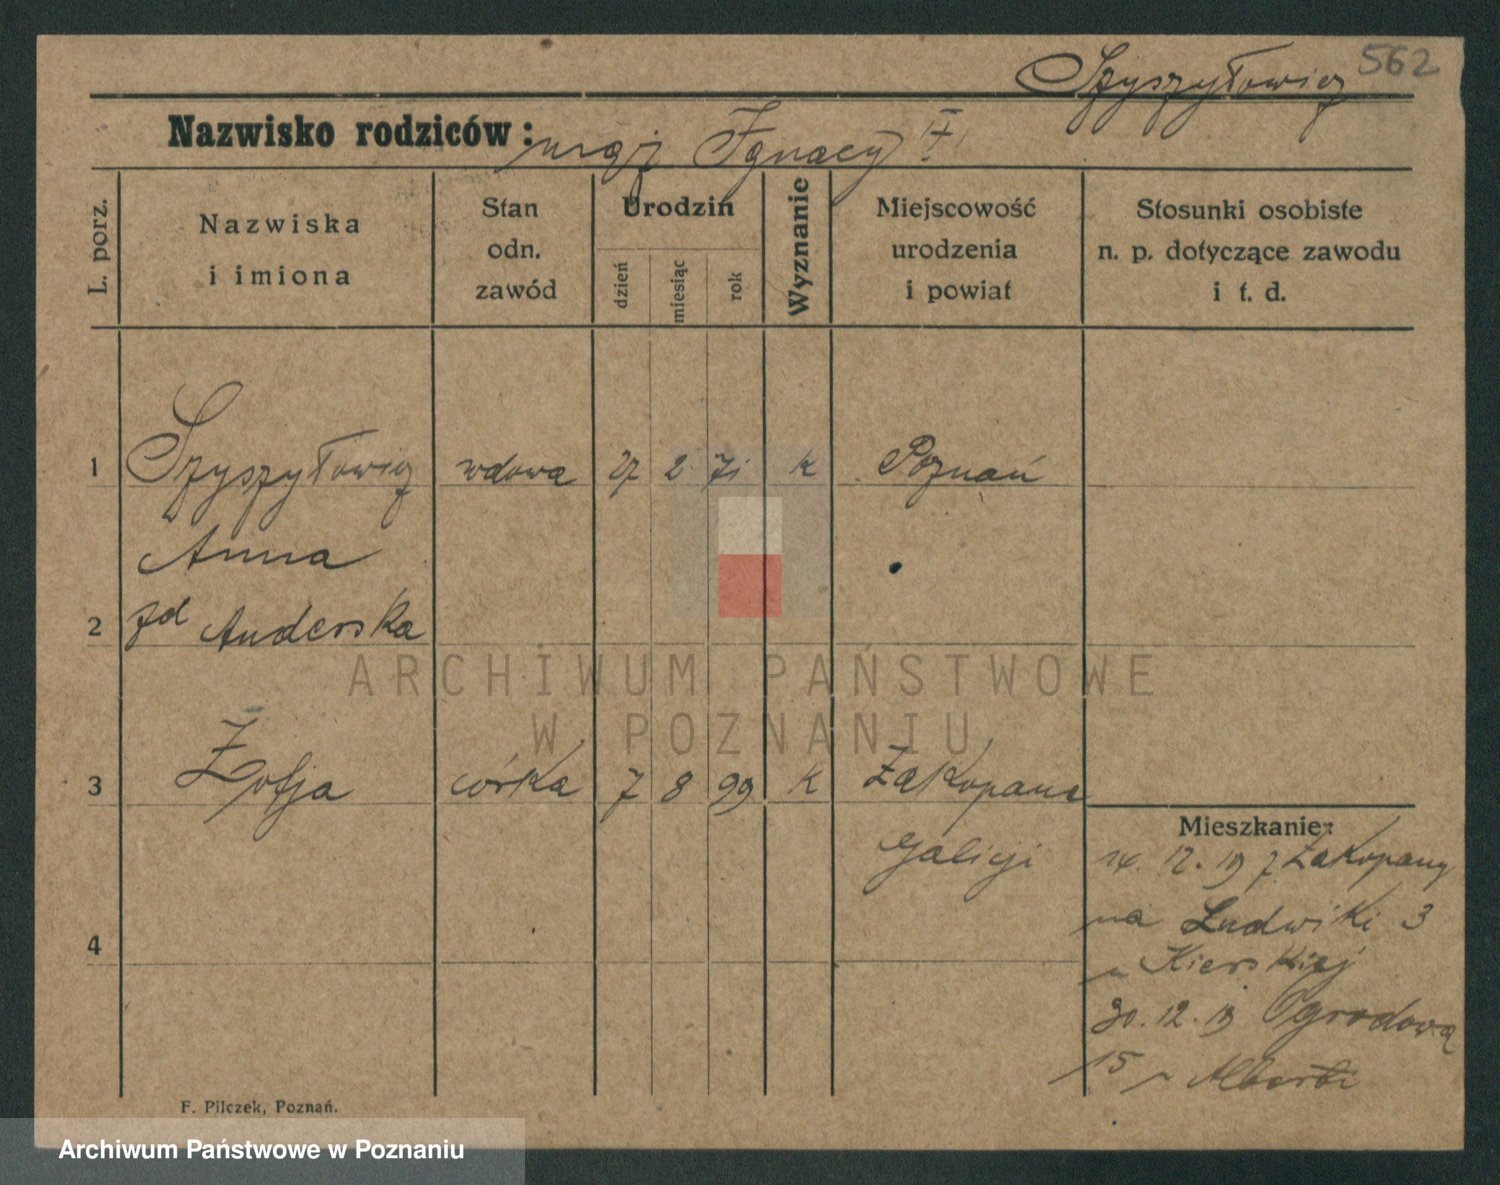 562
Szyszyłowicz
Nazwisko rodziców: mąż Ignacy
L. porz.
Nazwiska
i imiona
Stan
odn.
zawód
Urodzin
dzień
miesiąc
rok
Wyznanie
Miejscowość
urodzenia
i powiat
Stosunki osobiste
n. p. dotyczące zawodu
i t. d.
1 Szyszyłowicz wdowa 27 2 71 k Poznań
Anna
2 zd Anderska
3 Zofja córka 7 8 99 k Zakopane
Galicji
Mieszkanie:
14. 12. 19 z Zakopany
na Ludwiki 3
Kierskiej
4
30. 12. 19 Ogrodowa
15
F. Pilczek, Poznań.
ARCHIWUM PAŃSTWOWE
W POZNANIU
Archiwum Państwowe w Poznaniu